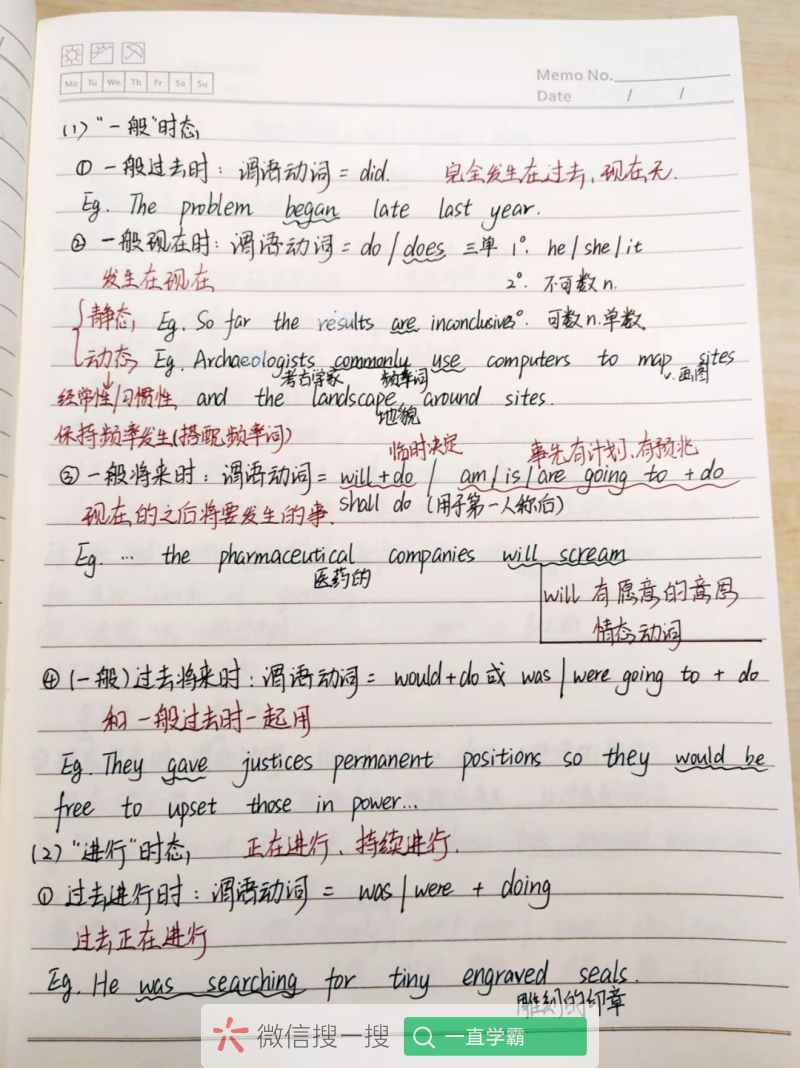 Mo Tu We Th Fr Sa Su
Memo No.
Date / /
(1) "一般"时态
① 一般过去时：谓语动词 = did. 完全发生在过去、现在无.
Eg. The problem began late last year.
② 一般现在时：谓语动词 = do / does 三单 1°. he / she / it
发生在现在 2°. 不可数 n.
静态, Eg. So far the results are inconclusive 3°. 可数 n. 单数.
动态, Eg. Archaeologists commonly use computers to map sites
考古学家 频率词 v. 画图
经常性/习惯性, and the landscape around sites.
地貌
保持频率发生(搭配频率词)
临时决定 事先有计划、有预兆
③ 一般将来时：谓语动词 = will + do / am / is / are going to + do
shall do (用于第一人称后)
现在的之后将要发生的事.
Eg. ... the pharmaceutical companies will scream
医药的
will 有愿意的意思
情态动词
④ (一般)过去将来时：谓语动词 = would + do 或 was / were going to + do
和一般过去时一起用
Eg. They gave justices permanent positions so they would be
free to upset those in power...
(2) "进行"时态, 正在进行、持续进行.
① 过去进行时：谓语动词 = was / were + doing
过去正在进行
Eg. He was searching for tiny engraved seals.
雕刻的印章
微信搜一搜 一直学霸